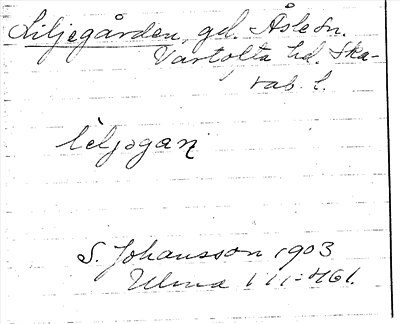 Liljegården, gd. Åsle sn.
Vartofta hd. Ska-
rab. l.
liljogaṉ
S. Johansson 1903
Ulma 111:461.